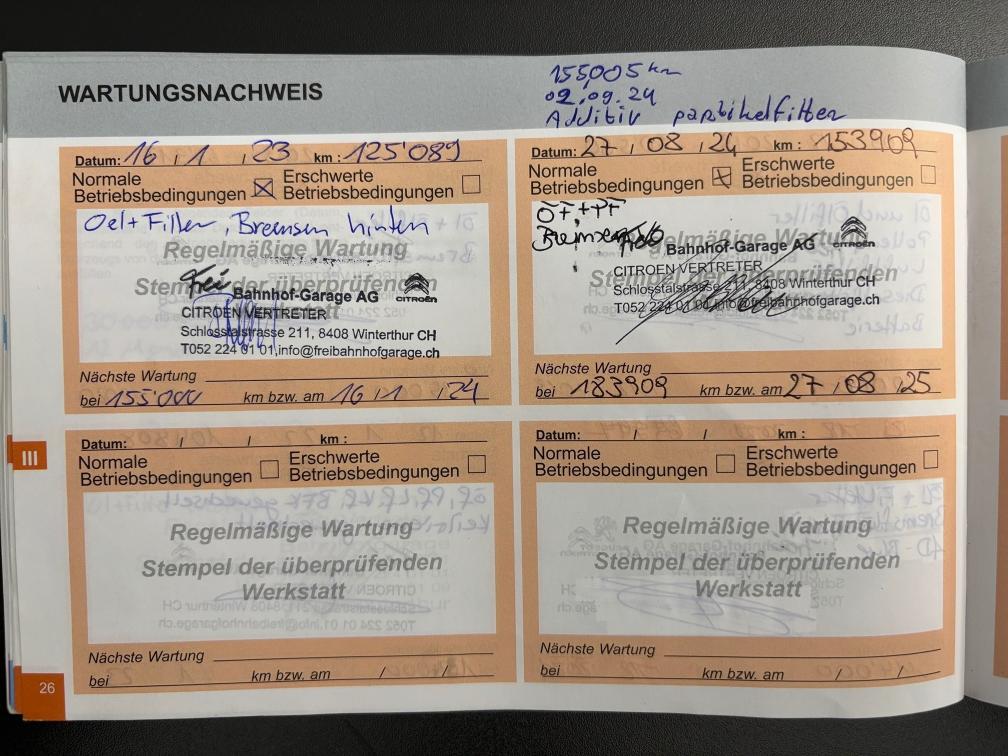 WARTUNGSNACHWEIS
155,005 km
02.09.24
Additiv partikelfilter
Datum: 16 / 1 / 23 km : 125'089
Normale Betriebsbedingungen ☒ Erschwerte Betriebsbedingungen ☐
Oel+Filter, Bremsen hinten
Regelmäßige Wartung
Stempel der überprüfenden
Werkstatt
Frei Bahnhof-Garage AG CITROËN
CITROEN VERTRETER
Schlosstalstrasse 211, 8408 Winterthur CH
T052 224 01 01,info@freibahnhofgarage.ch
Nächste Wartung
bei 155'000 km bzw. am 16 / 1 / 24
Datum: 27 / 08 / 24 km : 153909
Normale Betriebsbedingungen ☒ Erschwerte Betriebsbedingungen ☐
Regelmäßige Wartung
Stempel der überprüfenden
Bahnhof-Garage AG CITROËN
CITROEN VERTRETER
Schlosstalstrasse 211, 8408 Winterthur CH
T052 224 01 01,info@freibahnhofgarage.ch
Nächste Wartung
bei 183909 km bzw. am 27 / 08 / 25
III
Datum: / / km :
Normale Betriebsbedingungen ☐ Erschwerte Betriebsbedingungen ☐
Regelmäßige Wartung
Stempel der überprüfenden
Werkstatt
Nächste Wartung
bei km bzw. am / /
Datum: / / km :
Normale Betriebsbedingungen ☐ Erschwerte Betriebsbedingungen ☐
Regelmäßige Wartung
Stempel der überprüfenden
Werkstatt
Nächste Wartung
bei km bzw. am / /
26